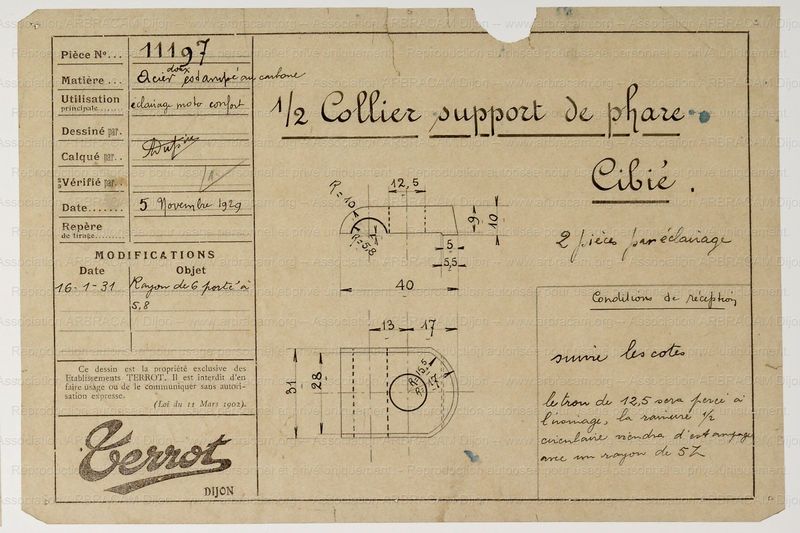 Pièce N°... 11197
Matière... Acier doux estampé au carbone
Utilisation principale... éclairage moto confort
Dessiné par.
Calqué par..
Vérifié par..
Date....... 5 Novembre 1929
Repère
de tirage.
MODIFICATIONS
Date Objet
16-1-31 Rayon de 6 porté à
5,8
Ce dessin est la propriété exclusive des
Etablissements TERROT. Il est interdit d'en
faire usage ou de le communiquer sans autori-
sation expresse.
(Loi du 11 Mars 1902).
Terrot
DIJON
1/2 Collier support de phare
Cibié.
2 pièces par éclairage
R=10
12,5
R=5,8
9
10
5
5,5
40
13
17
31
28
R=15,5
R=17
Conditions de réception
suivre les cotes
le trou de 12,5 sera percé à
l'usinage, la rainure 1/2
circulaire viendra d'estampage
avec un rayon de